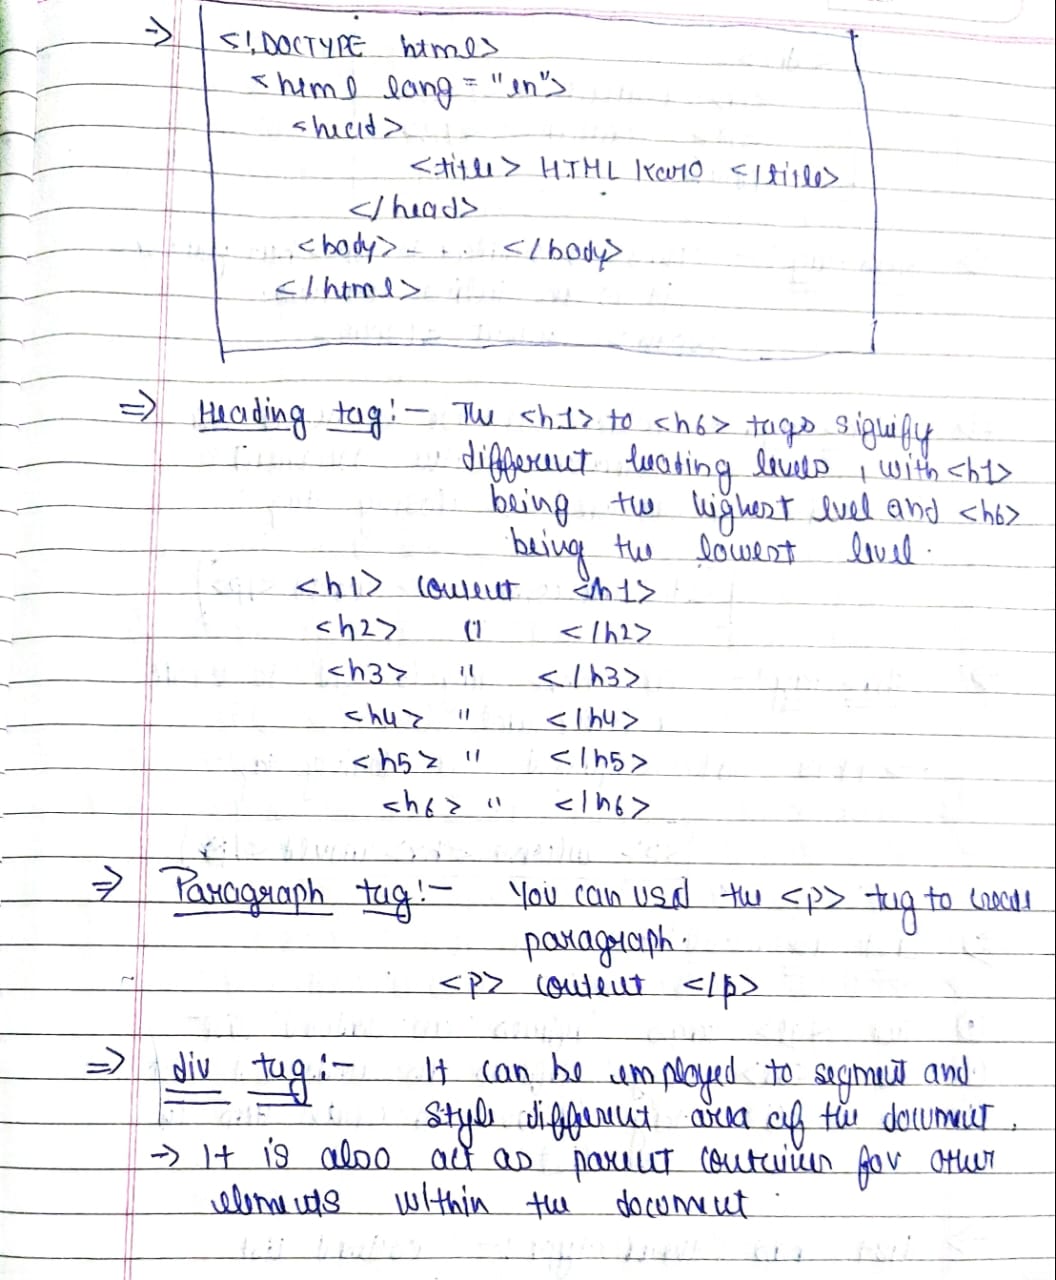 → <!DOCTYPE html>
<html lang = "en">
<head>
<title> HTML </title>
</head>
<body> - . . . </body>
</html>
⇒ Heading tag :- The <h1> to <h6> tags signify
different heading levels , with <h1>
being the highest level and <h6>
being the lowest level.
<h1> content <h1>
<h2> " </h2>
<h3> " </h3>
<h4> " </h4>
<h5> " </h5>
<h6> " </h6>
⇒ Paragraph tag :- You can usd the <p> tag to create
paragraph.
<p> content </p>
⇒ div tag :- It can be employed to segment and
style different area of the document.
→ It is also act as parent container for other
elements within the document.